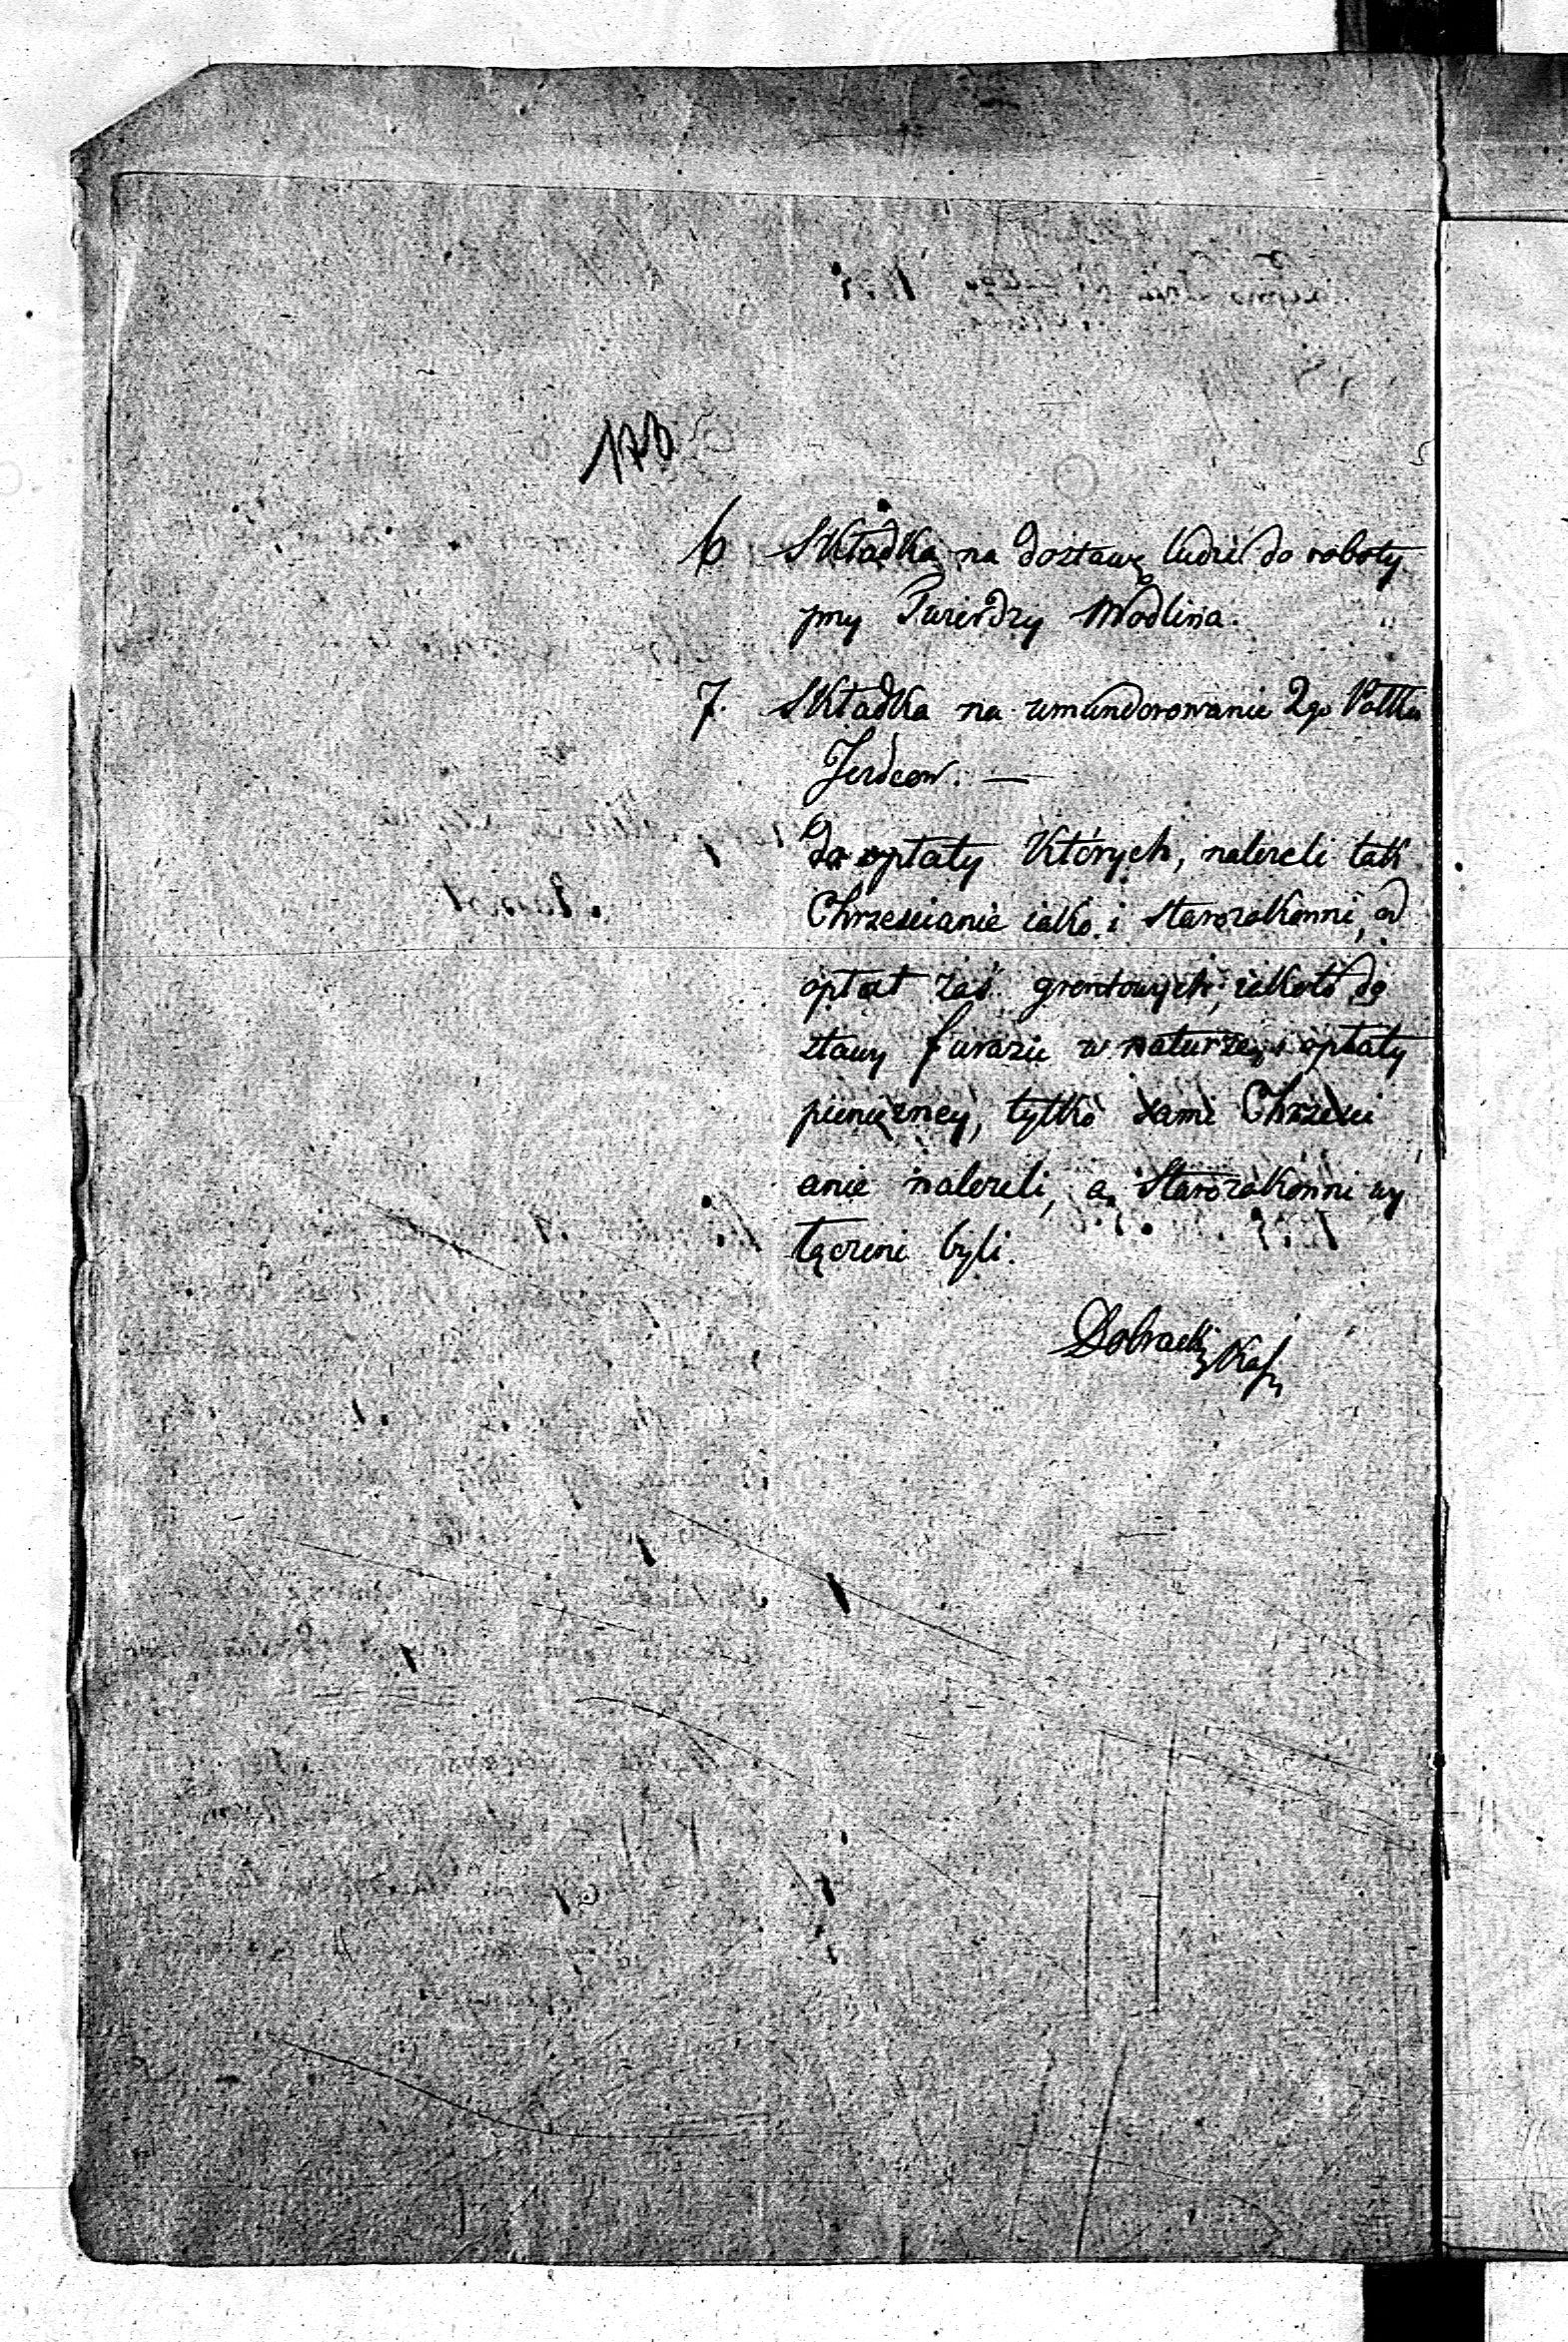 6 Składka na dostawę ludzi do roboty
przy Twierdzy Modlina.
7. Składka na umundorowanie 2go Pułku
Jezdców. —
Do opłaty których, należeli tak
Chrzescianie iako i Starozakonni, od
opłat zaś gruntowych, iakoto do
stawy furażu w naturze, i opłaty
pieniężney, tylko sami Chrzesci
anie należeli, a Starozakonni wy
łączeni byli.
Dobracki